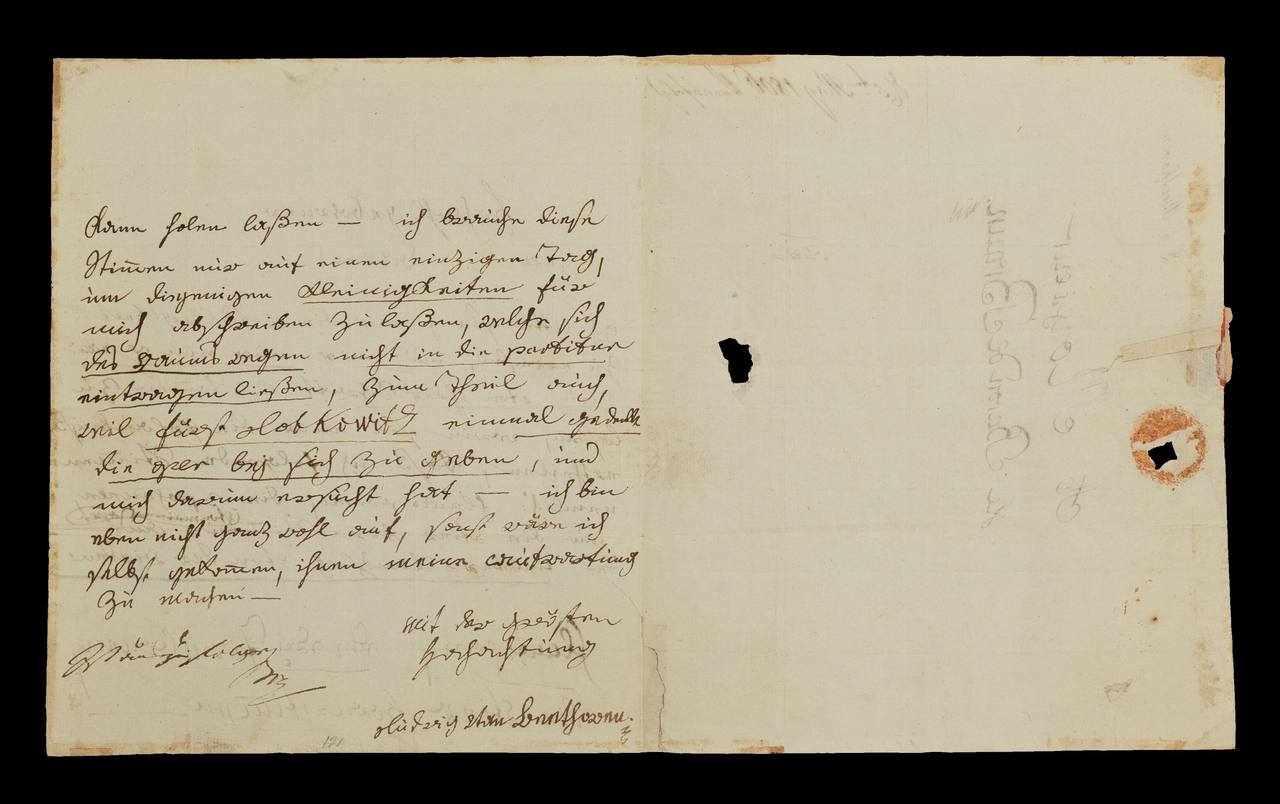 kann holen laßen — ich brauche diese
Stimmen nur auf einen einzigen Tag,
um diejenigen Kleinigkeiten für
mich abschreiben zu laßen, welche sich
des raums wegen nicht in die partitur
eintragen ließen, zum Theil auch,
weil fürst Lobkowitz einmal gedenkt
die oper bej sich zu geben, und
mich darum ersucht hat — ich bin
eben nicht ganz wohl auf, sonst wäre ich
selbst gekommen, ihnen meine aufwartung
zu machen —
mit der größten
Hochachtung
Ludwig van Beethoven
121